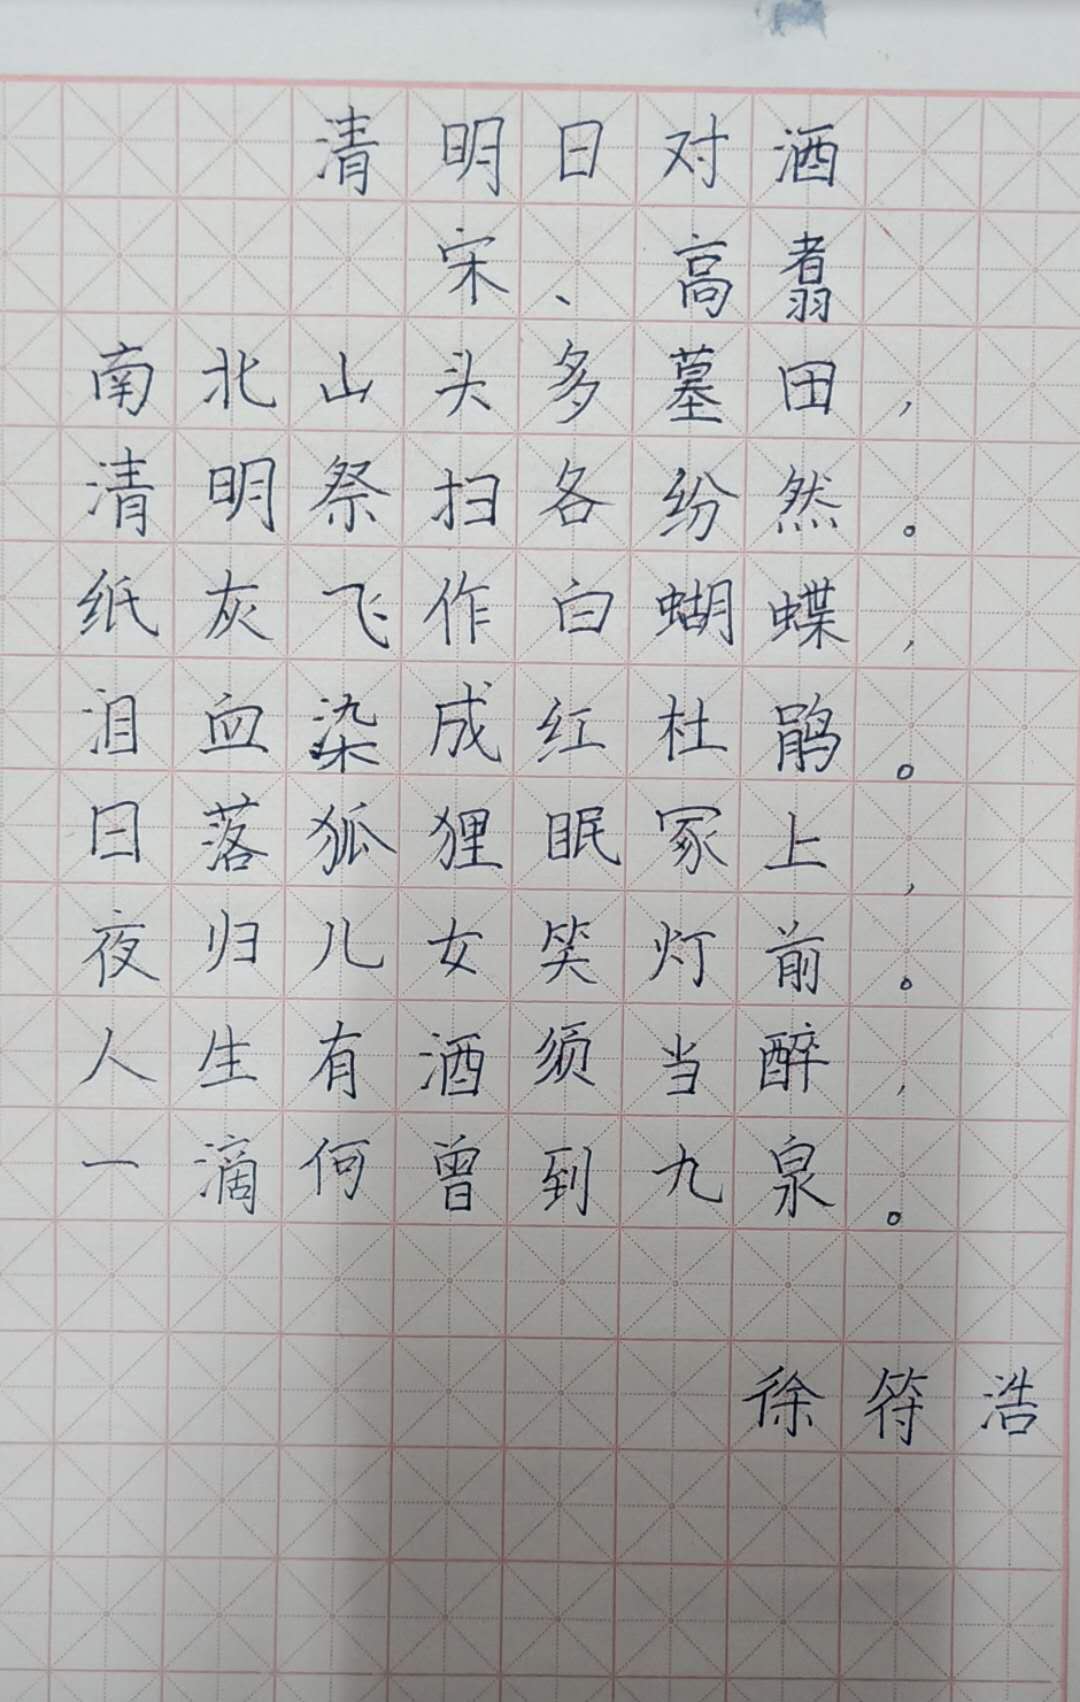 清明日对酒
宋、高翥
南北山头多墓田，
清明祭扫各纷然。
纸灰飞作白蝴蝶，
泪血染成红杜鹃。
日落狐狸眠冢上，
夜归儿女笑灯前。
人生有酒须当醉，
一滴何曾到九泉。
徐符浩